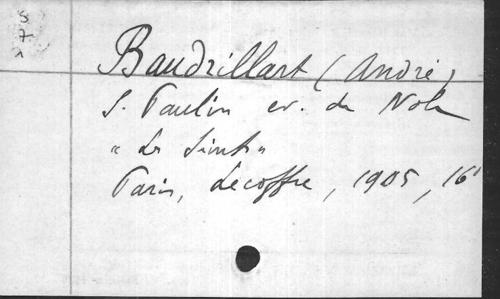 S
7
Baudrillart (André)
S. Paulin ev. de Nole
« Les Saints »
Paris, Lecoffre, 1905, 16°